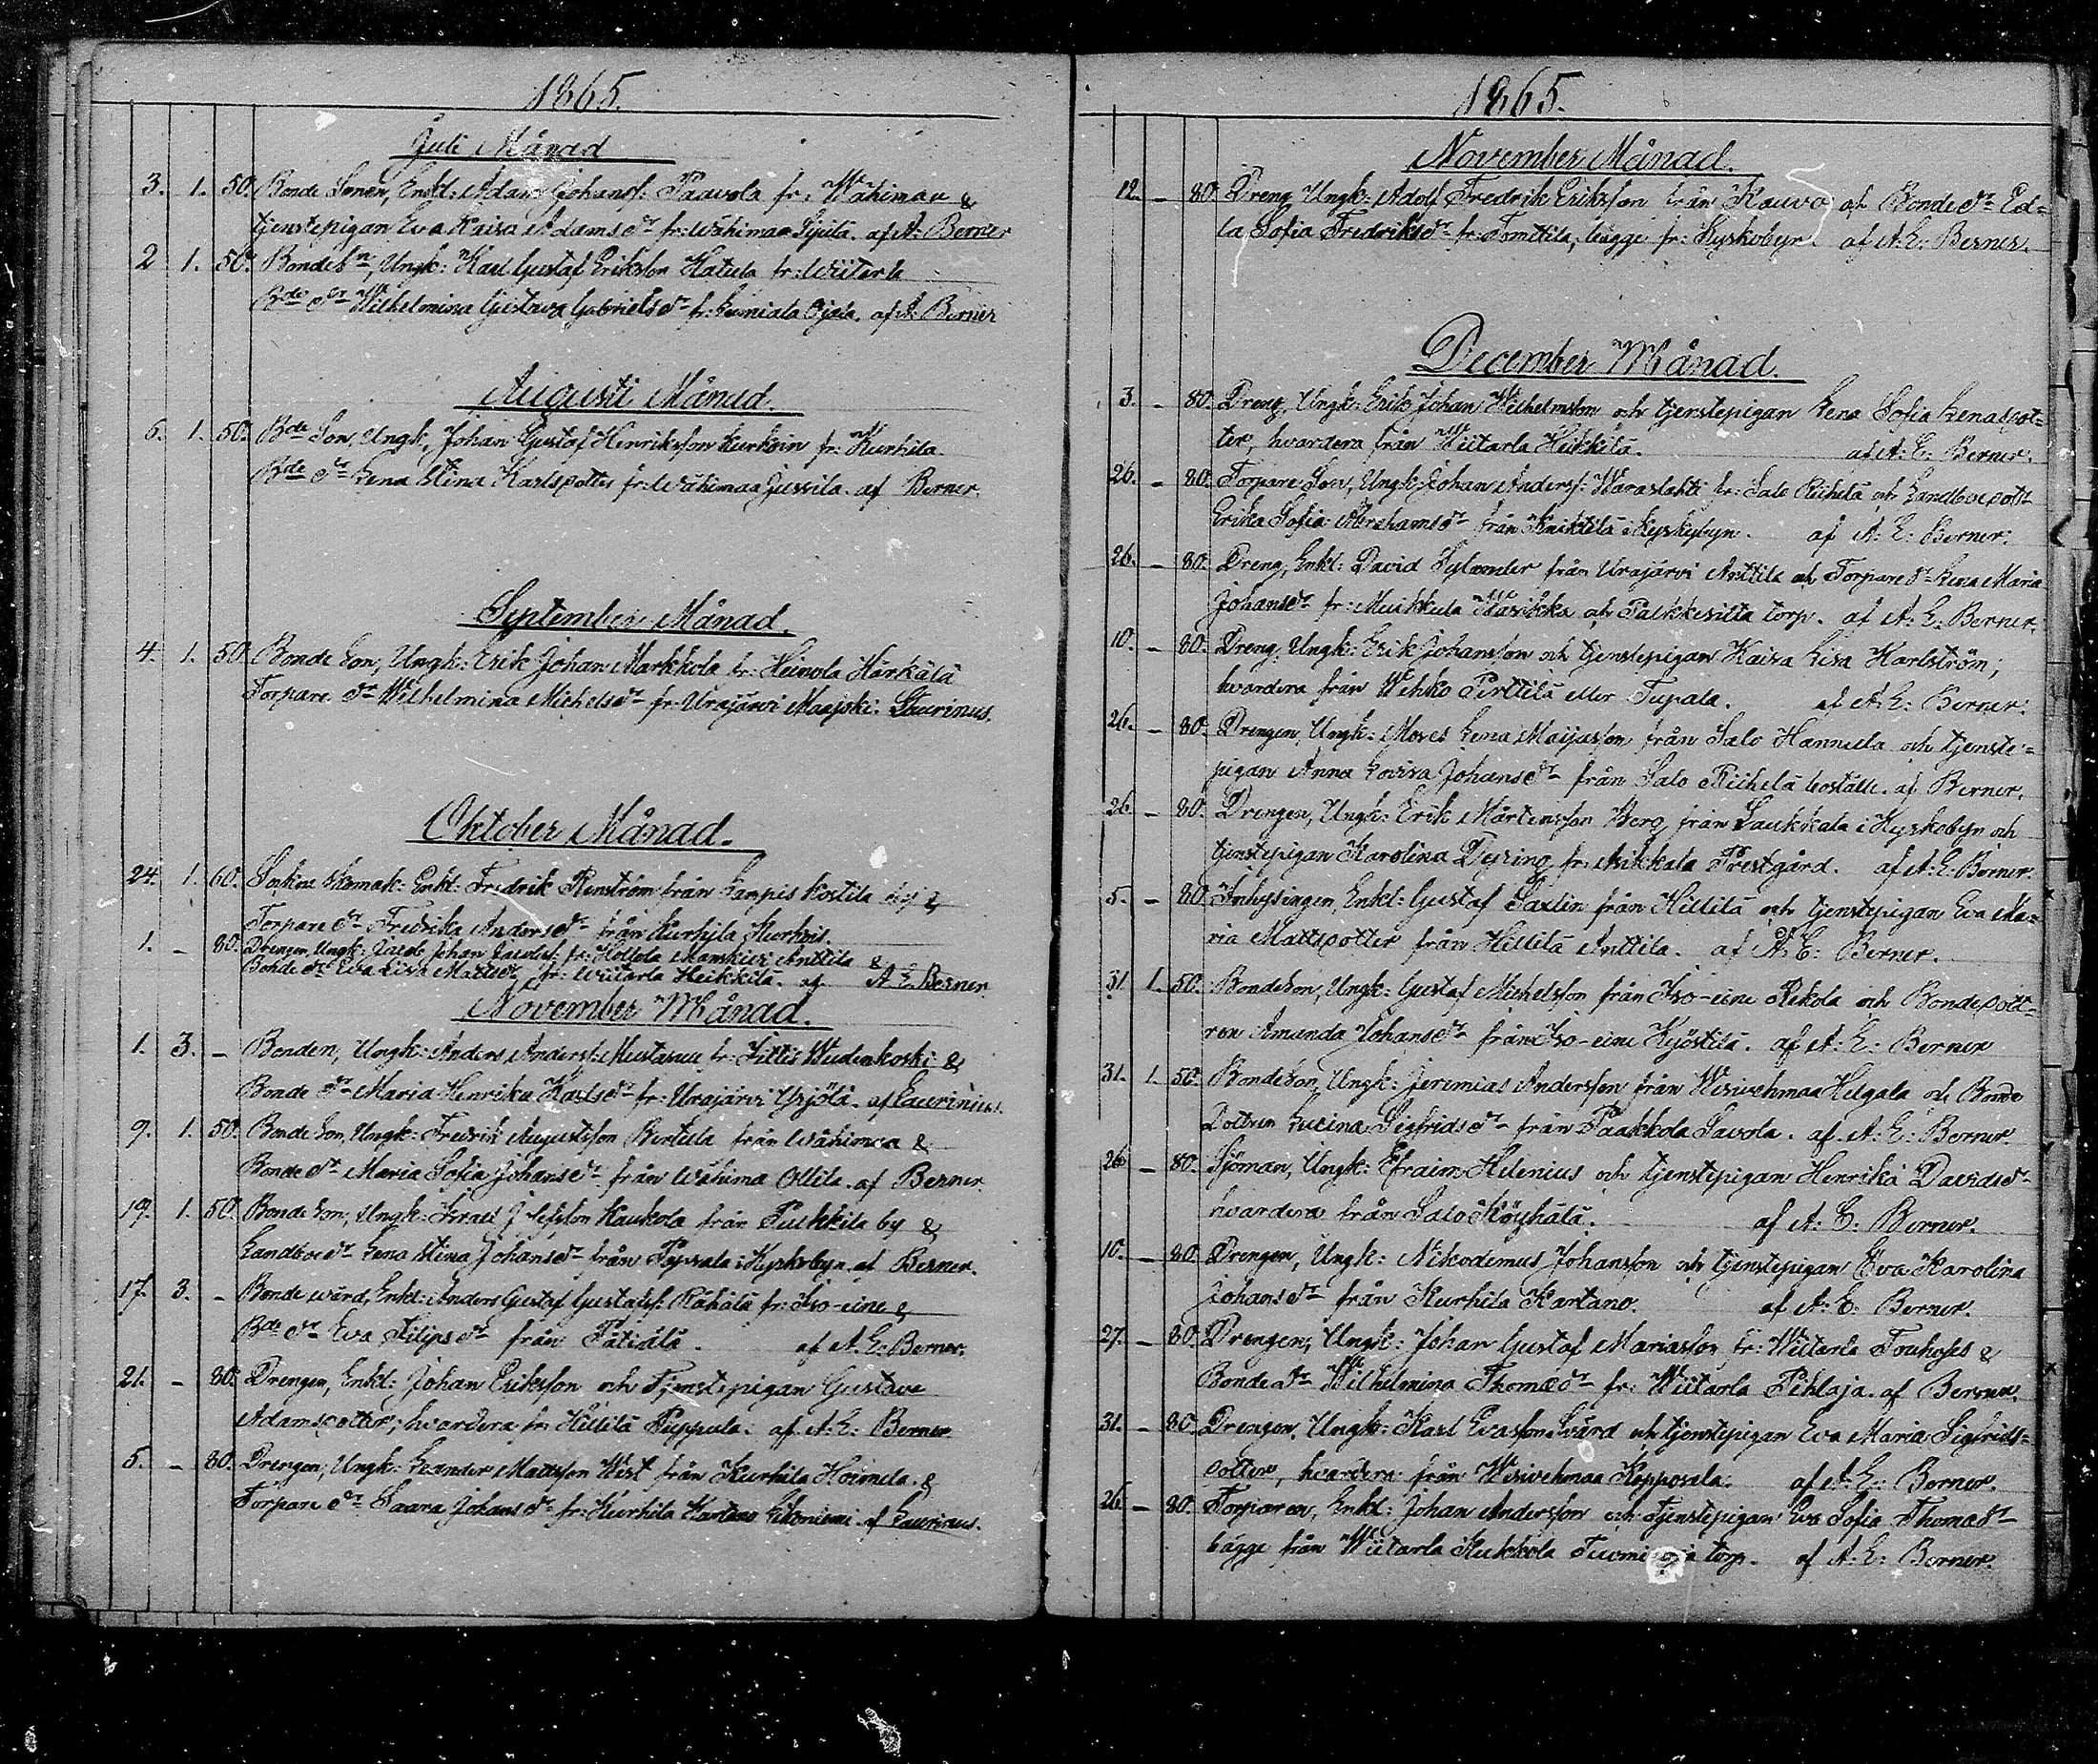 1865.
Juli Månad
3. 1. 50. Bonde Sonen, Enkl: Adam Johans: Paavola fr: Wähimaa &
tjenstepigan Eva Kaisa Adamsdr fr: Wähimaa Sipilä. af A: Berner
2 1. 50. Bonde Sn, Ungk: Karl Gustaf Eriksson Katula fr: Wiitarla
Bde dr Wilhelmina Gustava Gabrielsdr fr: Kumiala Ojala. af A: Berner
Augusti Månad.
6. 1. 50. Bde Son, Ungk, Johan Gustaf Henriksson Kurkoin fr: Kurhila.
Bde dr Lena Stina Karlsdotter fr: Wähimaa Jussila. af Berner.
September Månad.
4. 1. 50. Bonde Son, Ungk: Erik Johan Markkola fr: Heinola Härkälä
Torpare dr Wilhelmina Michelsdr fr: Urajärvi Maajoki. Laurinus.
Oktober Månad.
24. 1. 60. Sockne Skomak: Enkl: Fredrik Renström från Lampis Kostila by &
Torpare dr Fredrika Andersdr från Kurhila Kurkois.
1. – 80. Drengen, Ungk: Jakob Johan Jakobs: fr: Hollola Manskivi Anttila &
Bonde dr Eva Lisa Mattsdr fr: Wiitarla Heikkilä. af A. E. Berner.
November Månad.
1. 3. – Bonden, Ungk: Anders Anders: Mustasuu fr: Jittis Wudenkoski &
Bonde dr Maria Henrika Karlsdr fr: Urajärvi Yrjölä. af Laurinus.
9. 1. 50. Bonde Son, Ungk: Fredrik Augustsson Bertula från Wähimaa &
Bonde dr Maria Sofia Johansdr från Wähima Ollila. af Berner.
19. 1. 50. Bonde Son, Ungk: Israel Josefsson Kaukola från Pulkkila by &
Landboedr Lena Stina Johansdr från Papsala i Kyrkobyn. af Berner.
17. 3. – Bonde wärd, Enkl: Anders Gustaf Gustafs: Rähälä fr: Iso-eine &
Bde dr Eva Filipsdr från Pätiälä. af A. E: Berner.
21. – 80. Drengen, Enkl: Johan Eriksson och Tjenstepigan Gustava
Adamsdotter; hvardera fr: Hillilä Puppula. af A: E: Berner.
5. – 80. Drengen, Ungk: Leander Mattsson Wist från Kurhila Hoimela &
Torpare dr Saara Johansdr fr: Kurhila Kartano Likoniemi. af Laurinus.
1865.
November Månad.
12. – 80. Dreng Ungk: Adolf Fredrik Eriksson från Kauvo och Bonde dr Ed=
la Sofia Fredriksdr fr: Tomttila, bägge fr: Kyrkobyn. af A. E: Berner.
December Månad.
3. – 80. Dreng, Ungk: Erik Johan Wilhelmsson och tjenstepigan Lena Sofia Lenasdot=
ter, hvardera från Wiitarla Heikkilä. af A: E: Berner.
26. – 80. Torpare Son, Ungk: Johan Anders: Waraslahti fr: Salo Riihelä och Landboedottr
Erika Sofia Abrahamsdr från Knikkilä i Kyrkobyn. af A. E: Berner.
26. – 80. Dreng, Enkl: David Sylvander från Urajärvi Anttila och Torpare dr Lena Maria
Johansdr fr: Muikkula Warikka och Palkkisilta torp. af A: E: Berner.
10. – 80. Dreng, Ungk: Erik Johansson och tjenstepigan Kaisa Lisa Karlström;
hvardera från Wehko Perttilä eller Tupala. af A. E: Berner.
26. – 80. Drengen, Ungk: Moses Lena Maijasson från Salo Hannula och tjenste=
pigan Anna Lovisa Johansdr från Salo Riihelä boställe. af Berner.
26. – 80. Drengen, Ungk: Erik Mårtensson Berg från Laukkala i Kyrkobyn och
tjenstepigan Karolina Dyring fr: Asikkala Prestgård. af A: E: Berner.
5. – 80. Inhysingen, Enkl: Gustaf Saxlin från Hillilä och tjenstepigan Eva Ma=
ria Mattsdotter från Hillilä Anttila. af A: E: Berner.
31. 1. 50. Bonde Son, Ungk: Gustaf Michelsson från Iso-eine Rekola och Bonde dott=
ren Amanda Johansdr från Iso-eine Kyöstilä. af A: E: Berner
31. 1. 50. Bonde Son, Ungk: Jeremias Andersson från Wesivehmaa Helgala och Bonde
Dottren Lucina Sigfridsdr från Paakkola Savola. af A: E: Berner.
26 – 80. Sjöman, Ungk: Efraim Helenius och tjenstepigan Henrika Davidsdr
hvardera från Salo Köyhälä. af A: E: Berner.
10. – 80. Drengen, Ungk: Nikodemus Johansson och tjenstepigan Eva Karolina
Johansdr från Kurhila Kartano. af A: E: Berner.
27. – 80. Drengen, Ungk: Johan Gustaf Mariasson fr: Wiitarla Touhofs &
Bonde dr Wilhelmina Thomædr fr: Wiitarla Pihlaja. af Berner.
31. – 80. Drengen, Ungk: Karl Evasson Svärd och tjenstepigan Eva Maria Sigfrids=
dotter, hvardera från Wesivehmaa Kopposala. af A: E: Berner.
26 – 80. Torparen, Enkl: Johan Andersson och Tjenstepigan Eva Sofia Thomædr
bägge från Wiitarla Kukkola torp. af A: E: Berner.